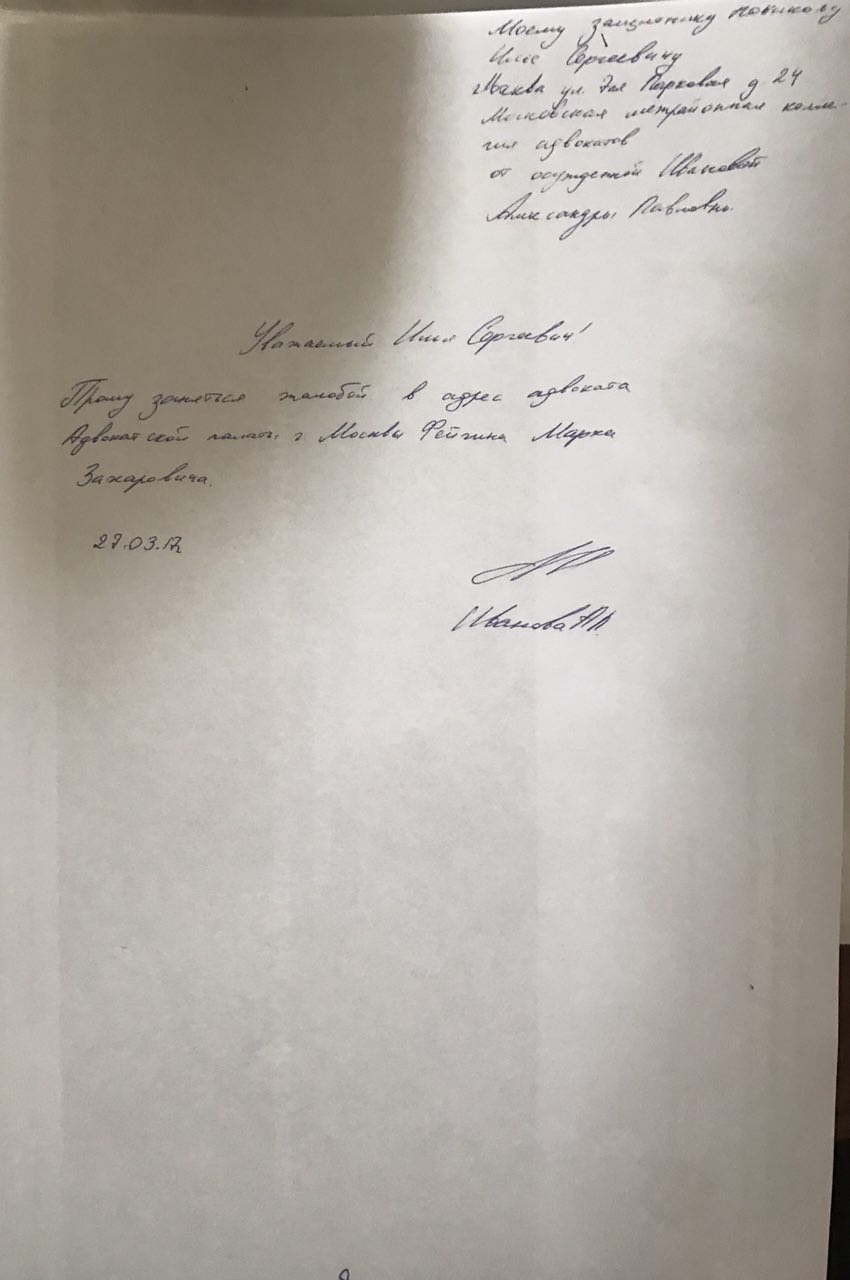 Моему защитнику Новикову
Илье Сергеевичу
г. Москва ул. 7ая Парковая д. 24
Московская межрайонная колле-
гия адвокатов
от осужденной Ивановой
Александры Павловны.
Уважаемый Илья Сергеевич!
Прошу заняться жалобой в адрес адвоката
Адвокатской палаты г Москвы Фейгина Марка
Захаровича.
27.03.17г
Иванова АП.